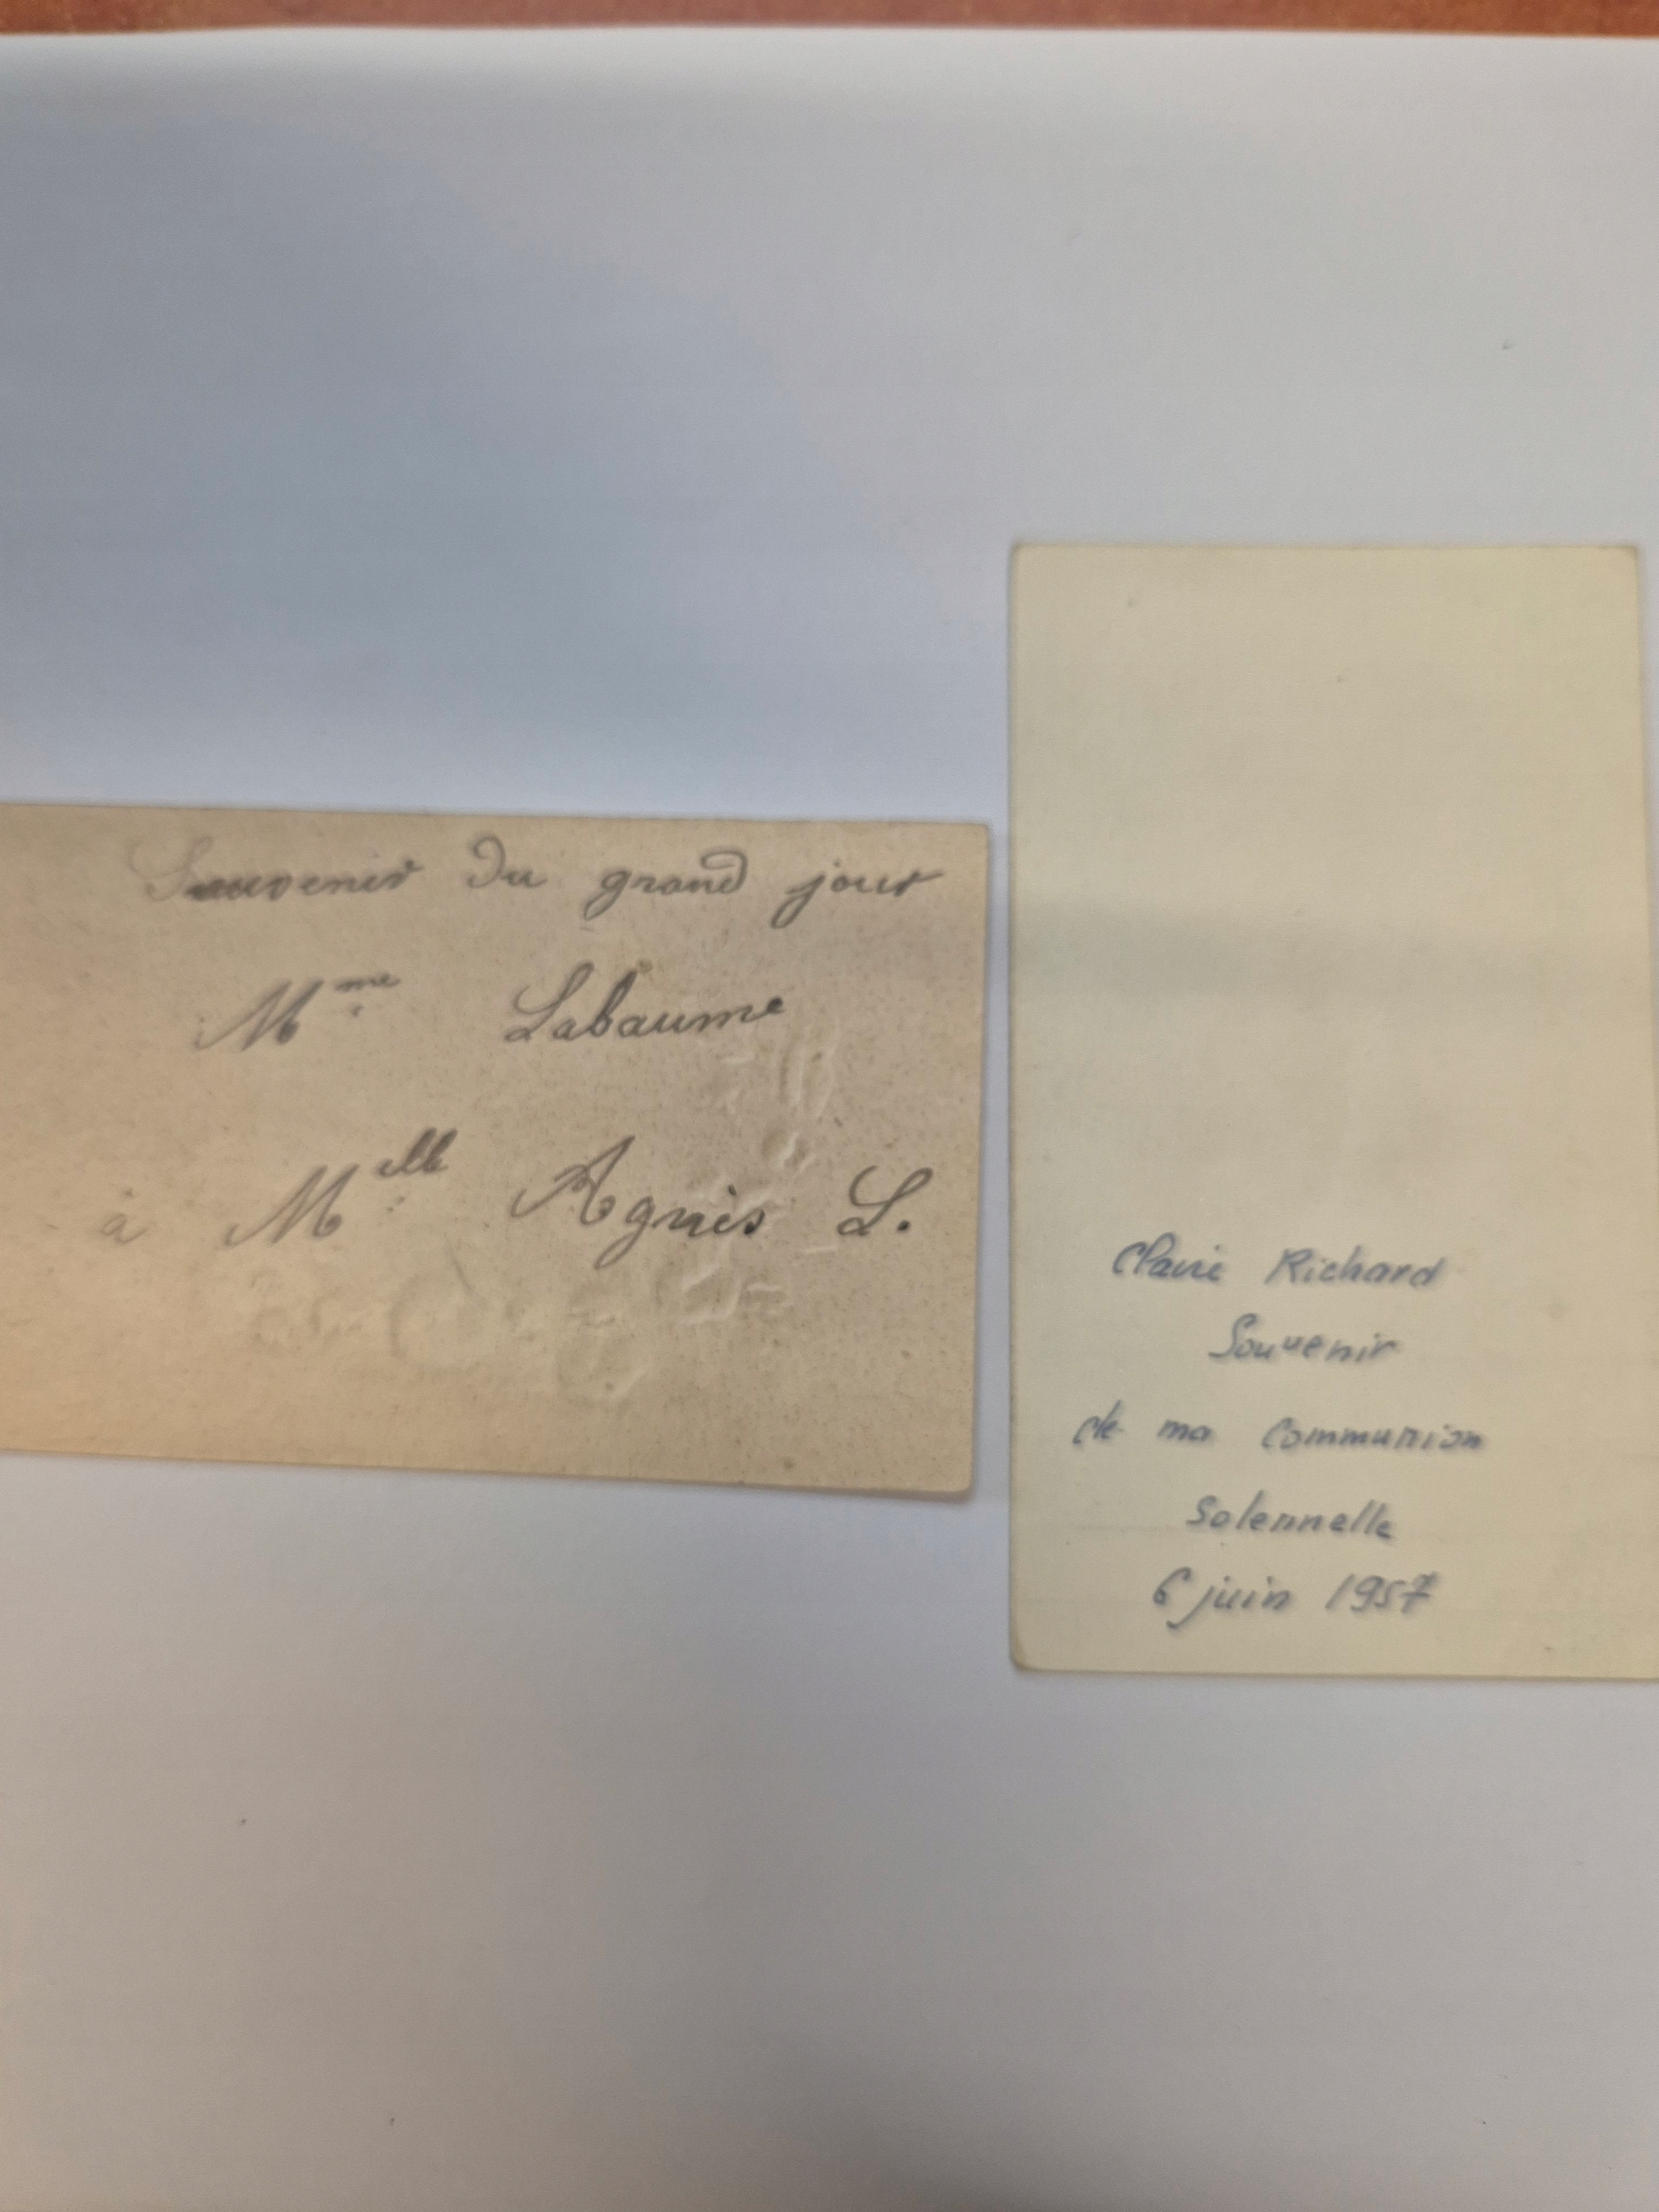 Souvenir du grand jour
Mme Labaume
à Melle Agnès L.
Claire Richard
Souvenir
de ma communion
solennelle
6 juin 1957